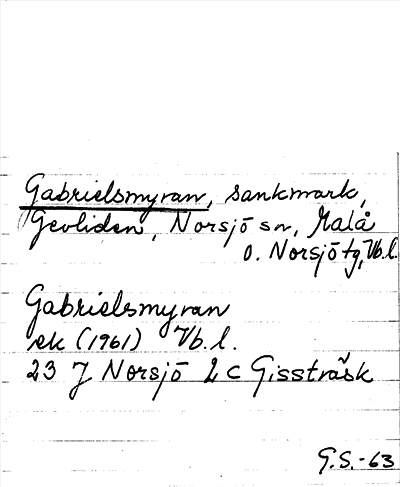 Gabrielsmyran, sankmark,
Gevliden, Norsjö sn, Malå
o. Norsjö tg, Vb.l.
Gabrielsmyran
ek (1961) Vb.l.
23 J Norsjö 2 c Gissträsk
G.S.-63